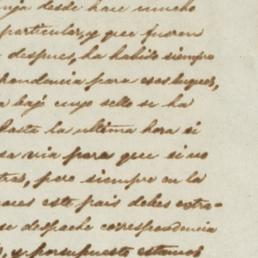 nja desde hace mucho
particular, y que fueron
despues, ha habido siempre
pondencia para esos buques,
bajo cuyo sello se ha
hasta la ultima hora si
sa via para que si no
tras, pero siempre en la
este pais debes extra-
se despache correspondencia
y por supuesto estamos